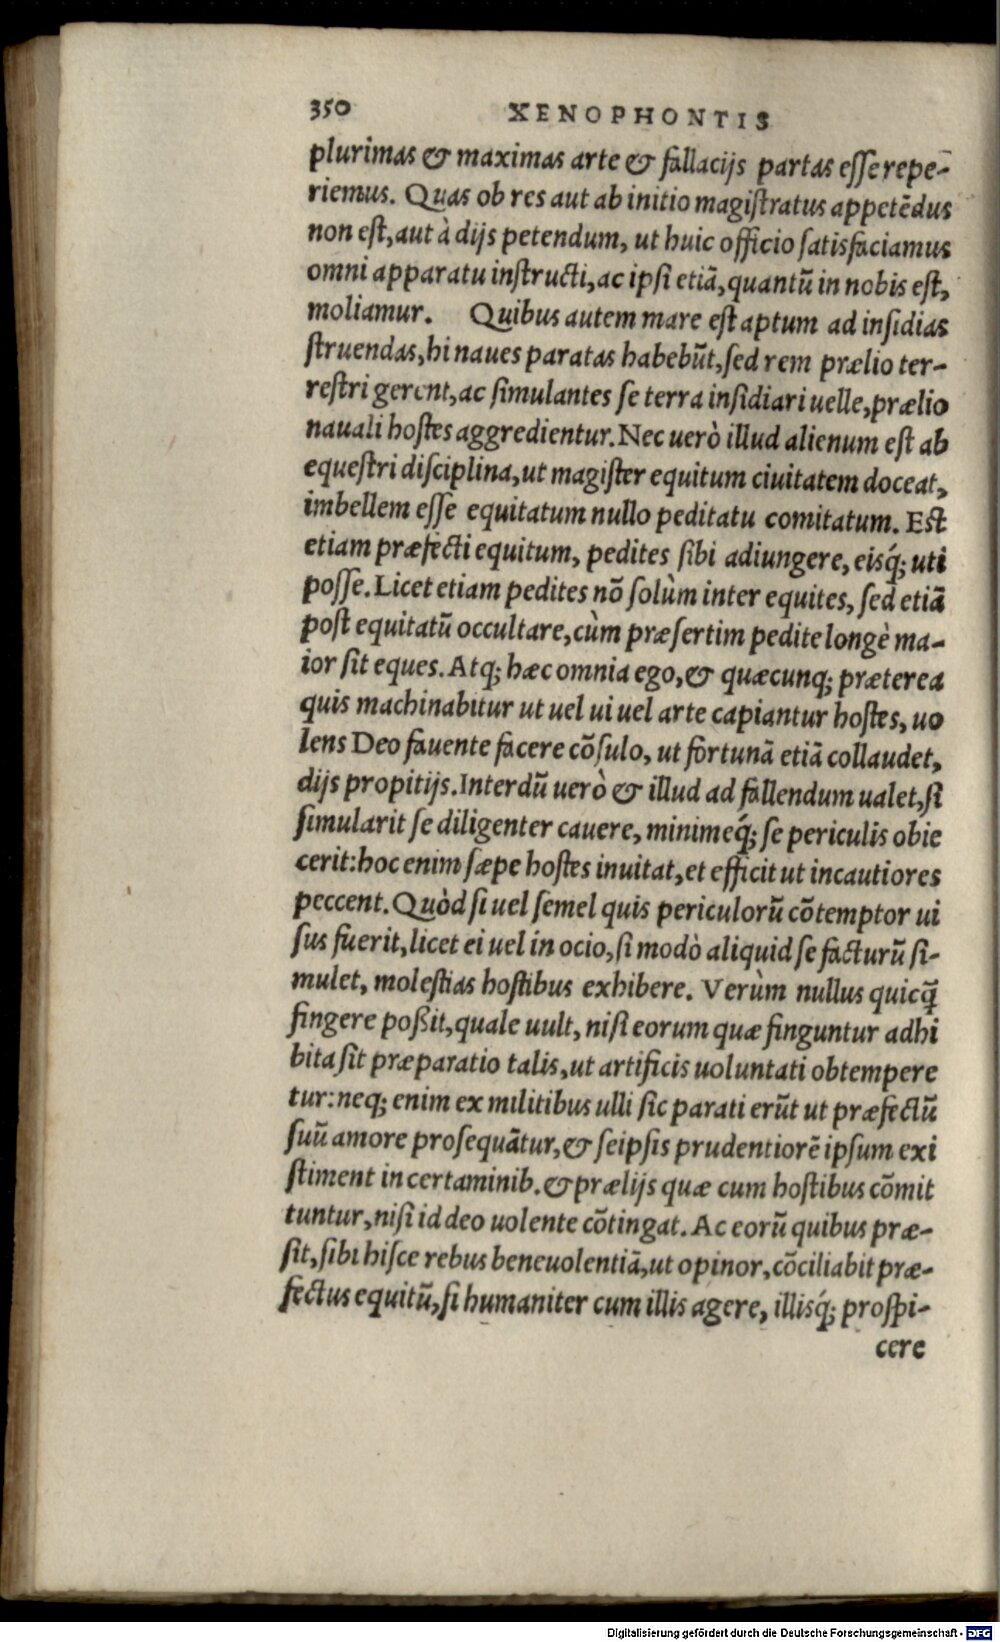 350 XENOPHONTIS
plurimas & maximas arte & fallacijs partas esse repe-
riemus. Quas ob res aut ab initio magistratus appetēdus
non est, aut à dijs petendum, ut huic officio satisfaciamus
omni apparatu instructi, ac ipsi etiā, quantū in nobis est,
moliamur. Quibus autem mare est aptum ad insidias
struendas, hi naues paratas habebūt, sed rem prælio ter-
restri gerent, ac simulantes se terra insidiari uelle, prælio
nauali hostes aggredientur. Nec uerò illud alienum est ab
equestri disciplina, ut magister equitum ciuitatem doceat,
imbellem esse equitatum nullo peditatu comitatum. Est
etiam præfecti equitum, pedites sibi adiungere, eisq́; uti
posse. Licet etiam pedites nō solùm inter equites, sed etiā
post equitatū occultare, cùm præsertim pedite longè ma-
ior sit eques. Atq; hæc omnia ego, & quæcunq; præterea
quis machinabitur ut uel ui uel arte capiantur hostes, uo
lens Deo fauente facere cōsulo, ut fortunā etiā collaudet,
dijs propitijs. Interdū uerò & illud ad fallendum ualet, si
simularit se diligenter cauere, minimeq́; se periculis obie
cerit: hoc enim sæpe hostes inuitat, et efficit ut incautiores
peccent. Quòd si uel semel quis periculorū cōtemptor ui
sus fuerit, licet ei uel in ocio, si modò aliquid se facturū si-
mulet, molestias hostibus exhibere. Verùm nullus quicq̄
fingere poßit, quale uult, nisi eorum quæ finguntur adhi
bita sit præparatio talis, ut artificis uoluntati obtempere
tur: neq; enim ex militibus ulli sic parati erūt ut præfectū
suū amore prosequātur, & seipsis prudentiorē ipsum exi
stiment in certaminib. & prælijs quæ cum hostibus cōmit
tuntur, nisi id deo uolente cōtingat. Ac eorū quibus præ-
sit, sibi hisce rebus beneuolentiā, ut opinor, cōciliabit præ-
fectus equitū, si humaniter cum illis agere, illisq́; prospi-
cere
Digitalisierung gefördert durch die Deutsche Forschungsgemeinschaft - DFG